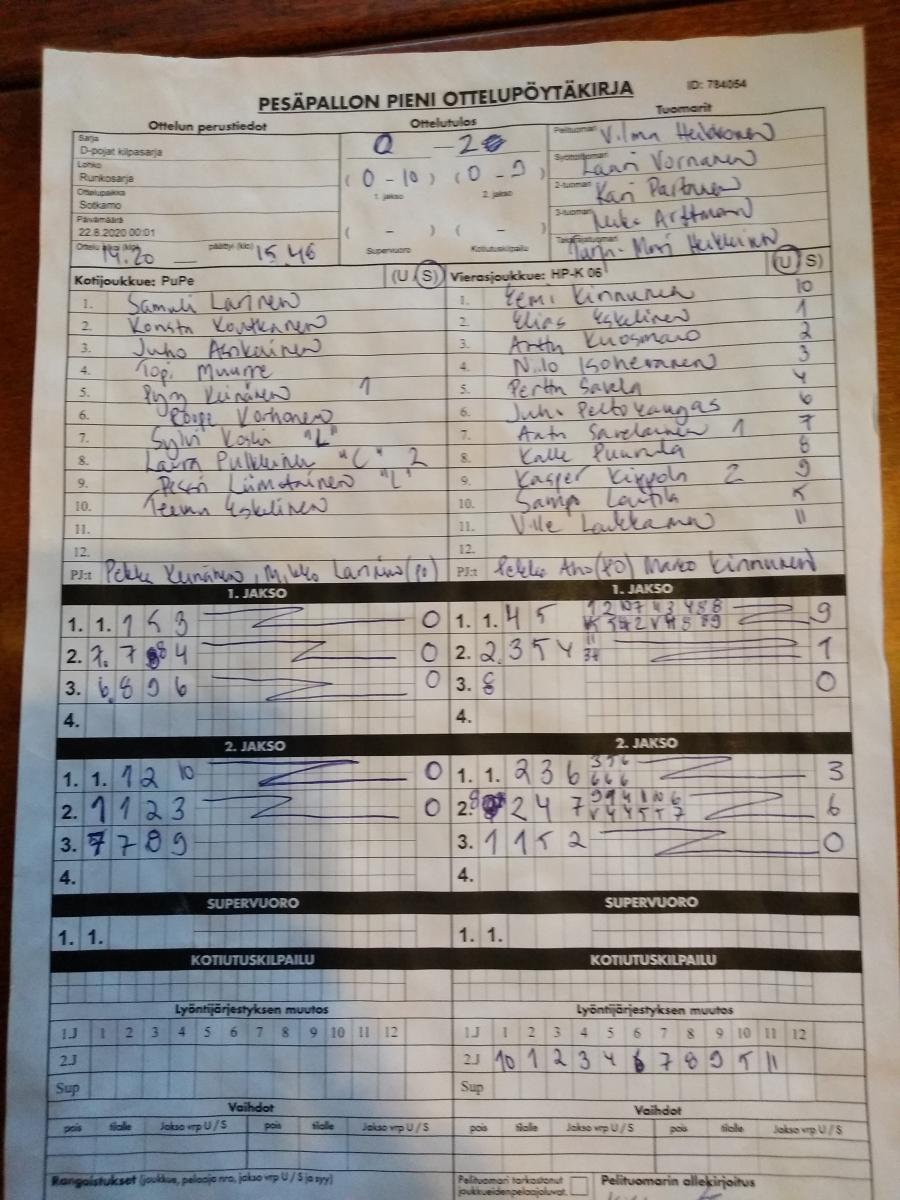 PESÄPALLON PIENI OTTELUPÖYTÄKIRJA
ID: 784054
Ottelun perustiedot
Ottelutulos
Tuomarit
Sarja
D-pojat kilpasarja
Lohko
Runkosarja
Ottelupaikka
Sotkamo
Päivämäärä
22.8.2020 00:01
Ottelu alkoi (klo) 14.20 päättyi (klo) 15.46
0 - 2
(0 - 10) (0 - 9)
1. jakso 2. jakso
( - ) ( - )
Supervuoro Kotiutuskilpailu
Pelituomari Vilma Heikkonen
Lauri Vornanen
2-tuomari Kari Partanen
3-tuomari Arttmann
Heikkinen
Kotijoukkue: PuPe (U (S))
1. Samuli Larinen
2. Konsta Koutkanen
3. Juho Asikainen
4. Topi Muurre
5. Pyry Keinänen 1
6. Roope Korhonen
7. Sylvi Koski "L"
8. Laura Pulkkinen "C" 2
9. Liimatainen "L"
10. Teemu Eskelinen
11.
12.
PJ:t Pekka Keinänen, Mikko Larinen (PO)
Vierasjoukkue: HP-K 06 (U) S)
1. Eemi Kinnunen 10
2. Elias Eskelinen 1
3. Arttu Kuosmano 2
4. Niilo Isoheranen 3
5. Perttu Savela 4
6. Juho Peltokangas 6
7. Antu Savolainen 1 7
8. Kalle Puurula 8
9. Kasper 2 9
10. Sampo Lautila 5
11. Ville Laukkanen 11
12.
PJ:t Pekka Aho (PO) Marko Kinnunen
1. JAKSO 1. JAKSO
1. 1. 1 5 3 0
2. 7. 7 8 4 0
3. 6 8 9 6 0
4.
1. 1. 4 5 9
2. 2 3 5 4 1
3. 8 0
4.
2. JAKSO 2. JAKSO
1. 1. 1 2 10 0
2. 1 1 2 3 0
3. 7 7 8 9
4.
1. 1. 2 3 6 3 5 6 6 6 6 3
2. 8 2 4 7 6
3. 1 1 5 2 0
4.
SUPERVUORO SUPERVUORO
1. 1. 1. 1.
KOTIUTUSKILPAILU KOTIUTUSKILPAILU
Lyöntijärjestyksen muutos Lyöntijärjestyksen muutos
1J 1 2 3 4 5 6 7 8 9 10 11 12 1J 1 2 3 4 5 6 7 8 9 10 11 12
2J 2J 10 1 2 3 4 6 7 8 9 5 11
Sup Sup
Vaihdot Vaihdot
pois tilalle Jakso vrp U / S pois tilalle Jakso vrp U / S pois tilalle Jakso vrp U / S pois tilalle Jakso vrp U / S
Rangaistukset (joukkue, pelaaja nro, jakso vrp U / S ja syy)
Pelituomari tarkastanut
joukkueiden pelaajaluvat.
Pelituomarin allekirjoitus